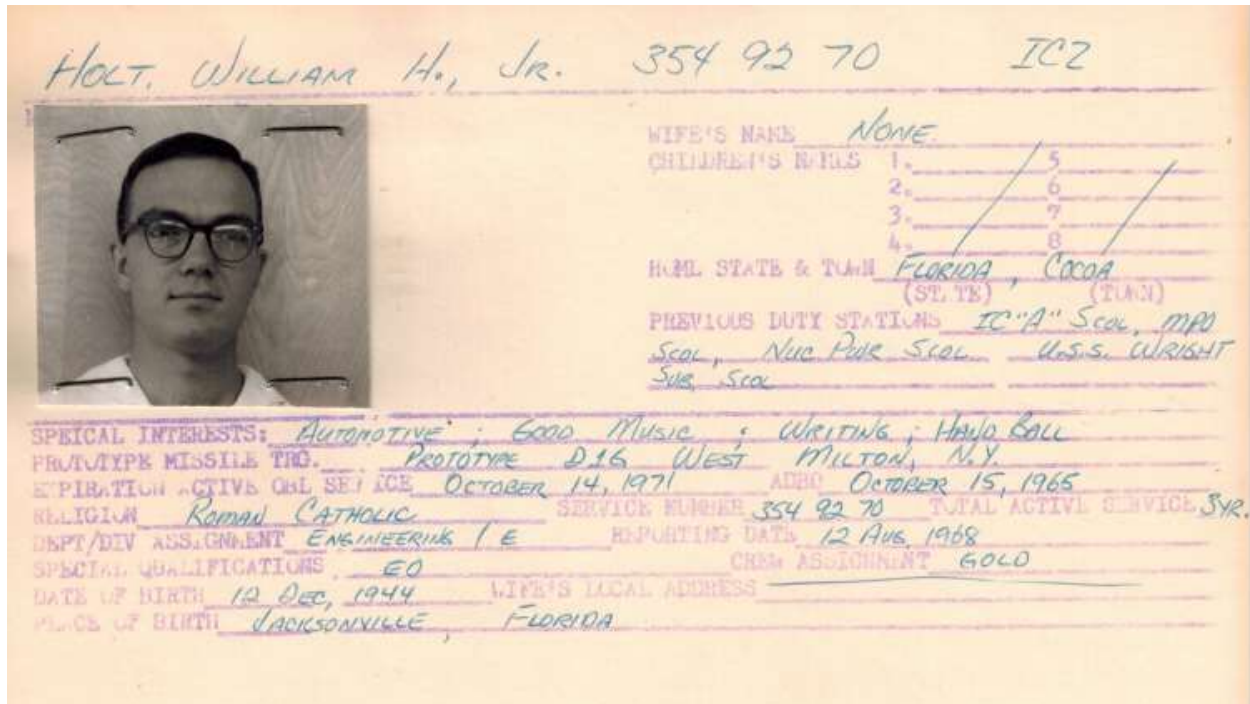 HOLT, WILLIAM H., JR. 354 92 70 IC2
WIFE'S NAME NONE
CHILDREN'S NAMES 1. 5
2. 6
3. 7
4. 8
HOME STATE & TOWN FLORIDA, COCOA
(STATE) (TOWN)
PREVIOUS DUTY STATIONS IC "A" SCOL, MPO
SCOL, NUC PWR SCOL U.S.S. WRIGHT
SUB, SCOL
SPEICAL INTERESTS: AUTOMOTIVE; GOOD MUSIC; WRITING; HAND BALL
PROTOTYPE MISSILE TRG. PROTOTYPE D1G WEST MILTON, N.Y.
EXPIRATION ACTIVE OBL SERVICE OCTOBER 14, 1971 ADBD OCTOBER 15, 1965
RELIGION ROMAN CATHOLIC SERVICE NUMBER 354 92 70 TOTAL ACTIVE SERVICE 3YR.
DEPT/DIV ASSIGNMENT ENGINEERING / E REPORTING DATE 12 AUG, 1968
SPECIAL QUALIFICATIONS EO CREW ASSIGNMENT GOLD
DATE OF BIRTH 12 DEC, 1944 WIFE'S LOCAL ADDRESS
PLACE OF BIRTH JACKSONVILLE, FLORIDA